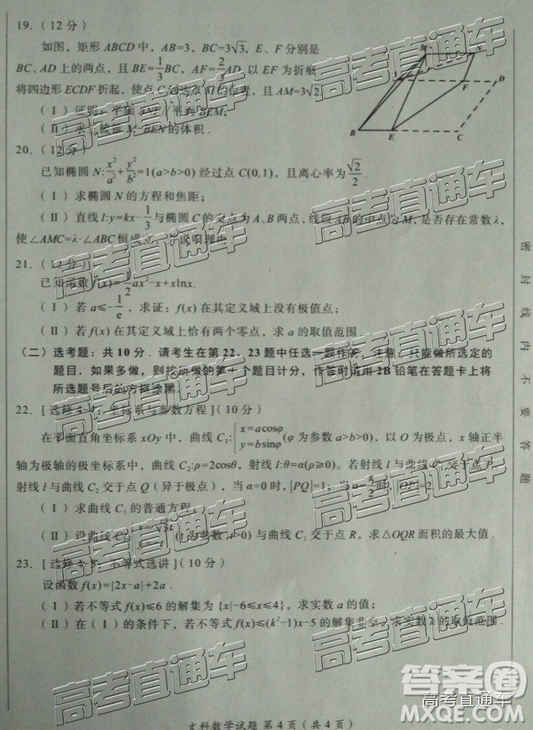 19. (12分)
如图,矩形ABCD中,AB=3,BC=3√3,E、F分别是
BC、AD上的两点,且BE=1/3BC,AF=2/3AD,以EF为折痕
将四边形ECDF折起,使点C 的位置,且AM=3√2
(Ⅰ)证明:平面 平面
(Ⅱ) BEN的体积.
A
D
F
B
E
C
20. (12分)
已知椭圆N:x²/a²+y²/b²=1(a>b>0)经过点C(0,1),且离心率为√2/2.
(Ⅰ)求椭圆N的方程和焦距;
(Ⅱ)直线l:y=kx-1/3与椭圆C的交点为A、B两点,线段AB的中点为M,是否存在常数λ,
使∠AMC=λ·∠ABC恒成立,并说明理由.
21. (12分)
已知函数f(x)=1/2ax²-x+xlnx.
(Ⅰ)若a≤-1/e,求证:f(x)在其定义域上没有极值点;
(Ⅱ)若f(x)在其定义域上恰有两个零点,求a的取值范围.
(二)选考题:共10分.请考生在第22、23题中任选一题作答,注意:只能做所选定的
题目.如果多做,则按所做的第一个题目计分,作答时请用2B铅笔在答题卡上将
所选题号后的方框涂黑.
22. [选修4-4:坐标系与参数方程](10分)
在平面直角坐标系xOy中,曲线C₁:{x=acosφ y=bsinφ(φ为参数a>b>0),以O为极点,x轴正半
轴为极轴的极坐标系中,曲线C₂:ρ=2cosθ,射线l:θ=α(ρ≥0).若射线l与曲线C₁交于点P,
射线l与曲线C₂交于点Q(异于极点),当α=0时,|PQ|=1,当α=π/2时,|OP|=2
(Ⅰ)求曲线C₁的普通方程;
(Ⅱ)设曲线C (t为参数t>0)与曲线C₁交于点R,求△OQR面积的最大值.
23. [选修4-5:不等式选讲](10分)
设函数f(x)=|2x-a|+2a.
(Ⅰ)若不等式f(x)≤6的解集为{x|-6≤x≤4},求实数a的值;
(Ⅱ)在(Ⅰ)的条件下,若不等式f(x)≤(k²-1)x-5的解集非空,求实数k的取值范围.
文科数学试题 第4页(共4页)
密封线内不要答题
高考直通车
答案圈
MXQE.COM